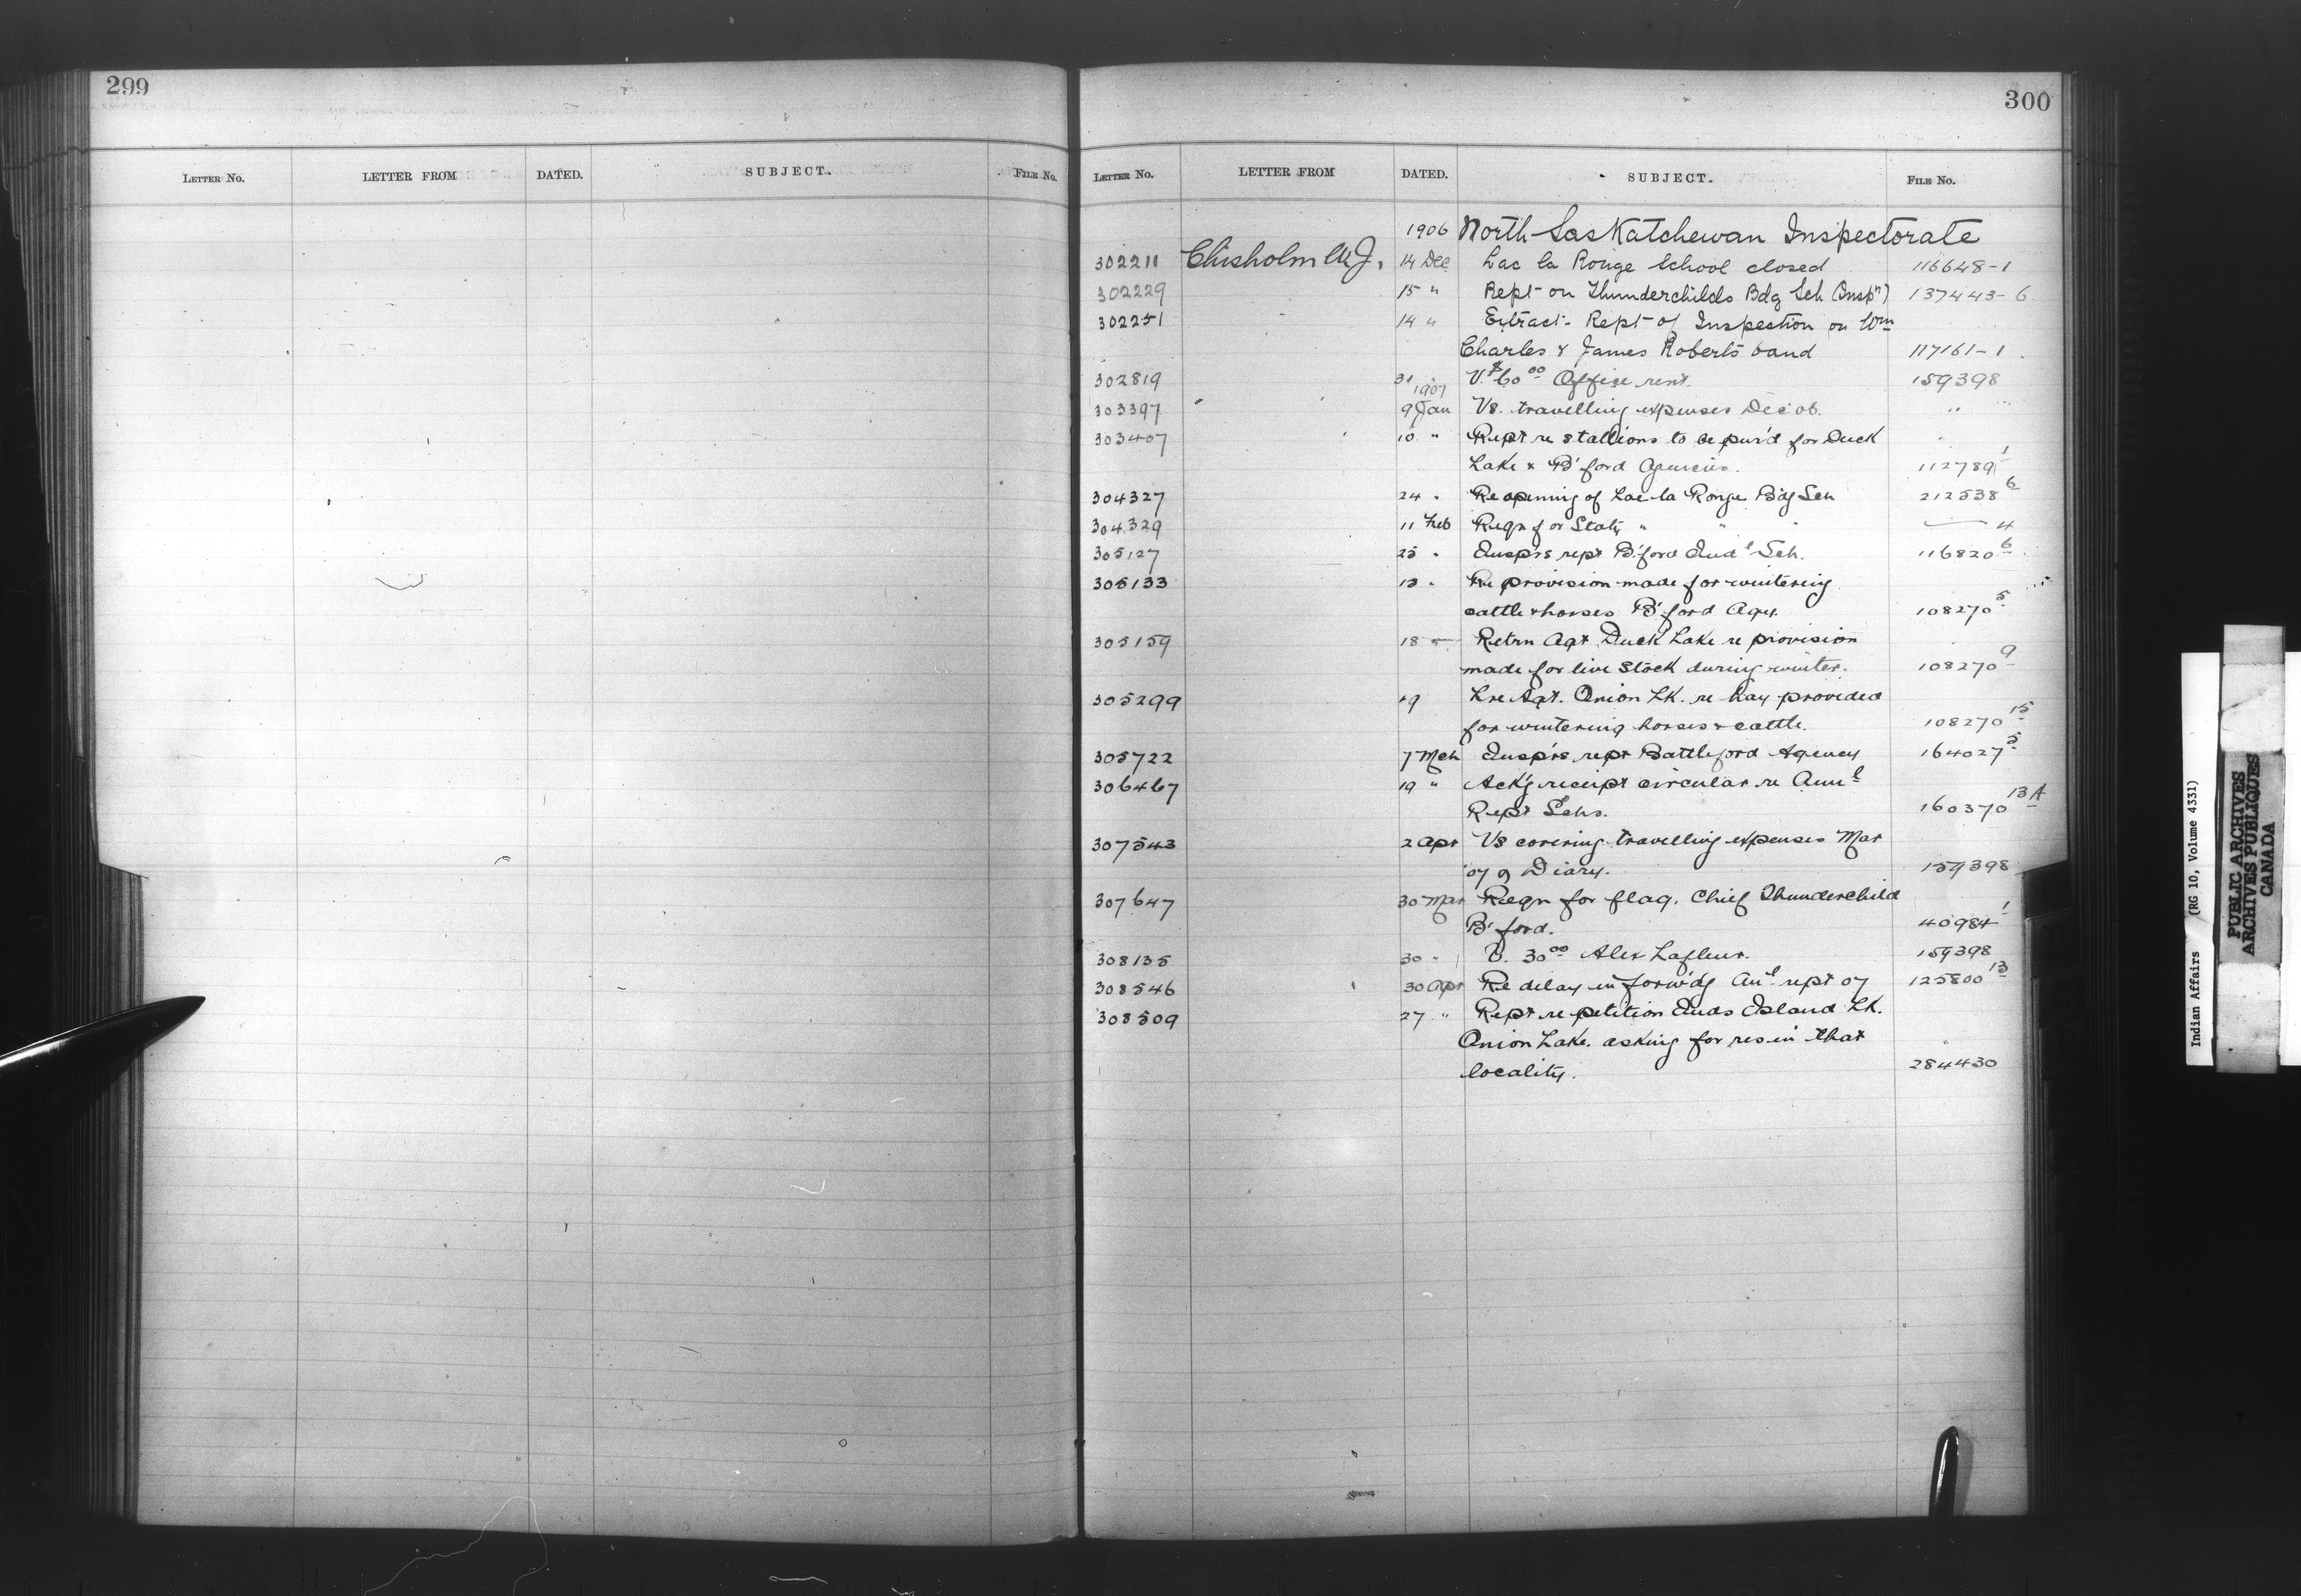 299
300
LETTER NO. LETTER FROM DATED. SUBJECT. FILE NO.
LETTER NO. LETTER FROM DATED. SUBJECT. FILE NO.
1906 North Saskatchewan Inspectorate
302211 Chisholm W.J. 14 Dec Lac la Ronge School closed 116648-1
302229 15 " Rept on Thunderchilds Bdg Sch (Inspn) 137443-6
302251 14 " Extract. Rept of Inspection on Wm
Charles & James Roberts band 117161-1
302819 31 V. $60 00 Office rent. 159398
1907
303397 9 Jan Vs. travelling expenses Dec 06. " "
303407 10 " Rept re stallions to be pur'd for Duck
Lake & B'ford Agencies. 112789 1
304327 24 " Re opening of Lac la Ronge Bdg Sch 212538 6
304329 11 Feb Reqn for Staty " " " — 4
305127 25 " Insprs rept B'ford Indl Sch. 116820 6
305133 13 " Re provision made for wintering
cattle & horses B'ford Agcy. 108270 5
305159 18 " Retrn Agt Duck Lake re provision
made for live stock during winter. 108270 9
305299 19 Lre Agt. Onion Lk. re hay provided
for wintering horses & cattle. 108270 15
305722 7 Mch Insprs rept Battleford Agency 164027 5
306467 19 " Ack'g receipt circular re Annl
Rept Schs. 160370 13A
307543 2 Apr Vs covering travelling expenses Mar
07 & Diary. 159398
307647 30 Mar Reqn for flag. Chief Thunderchild
B'ford. 40984 1
308135 30 " V. 30 00 Alex Lafleur. 159398
308546 30 Apr Re delay in forw'dg Anl rept 07 125800 13
308509 27 " Rept re petition Inds Island Lk.
Onion Lake. asking for res in that
locality. 284430
Indian Affairs (RG 10, Volume 4331)
PUBLIC ARCHIVES
ARCHIVES PUBLIQUES
CANADA